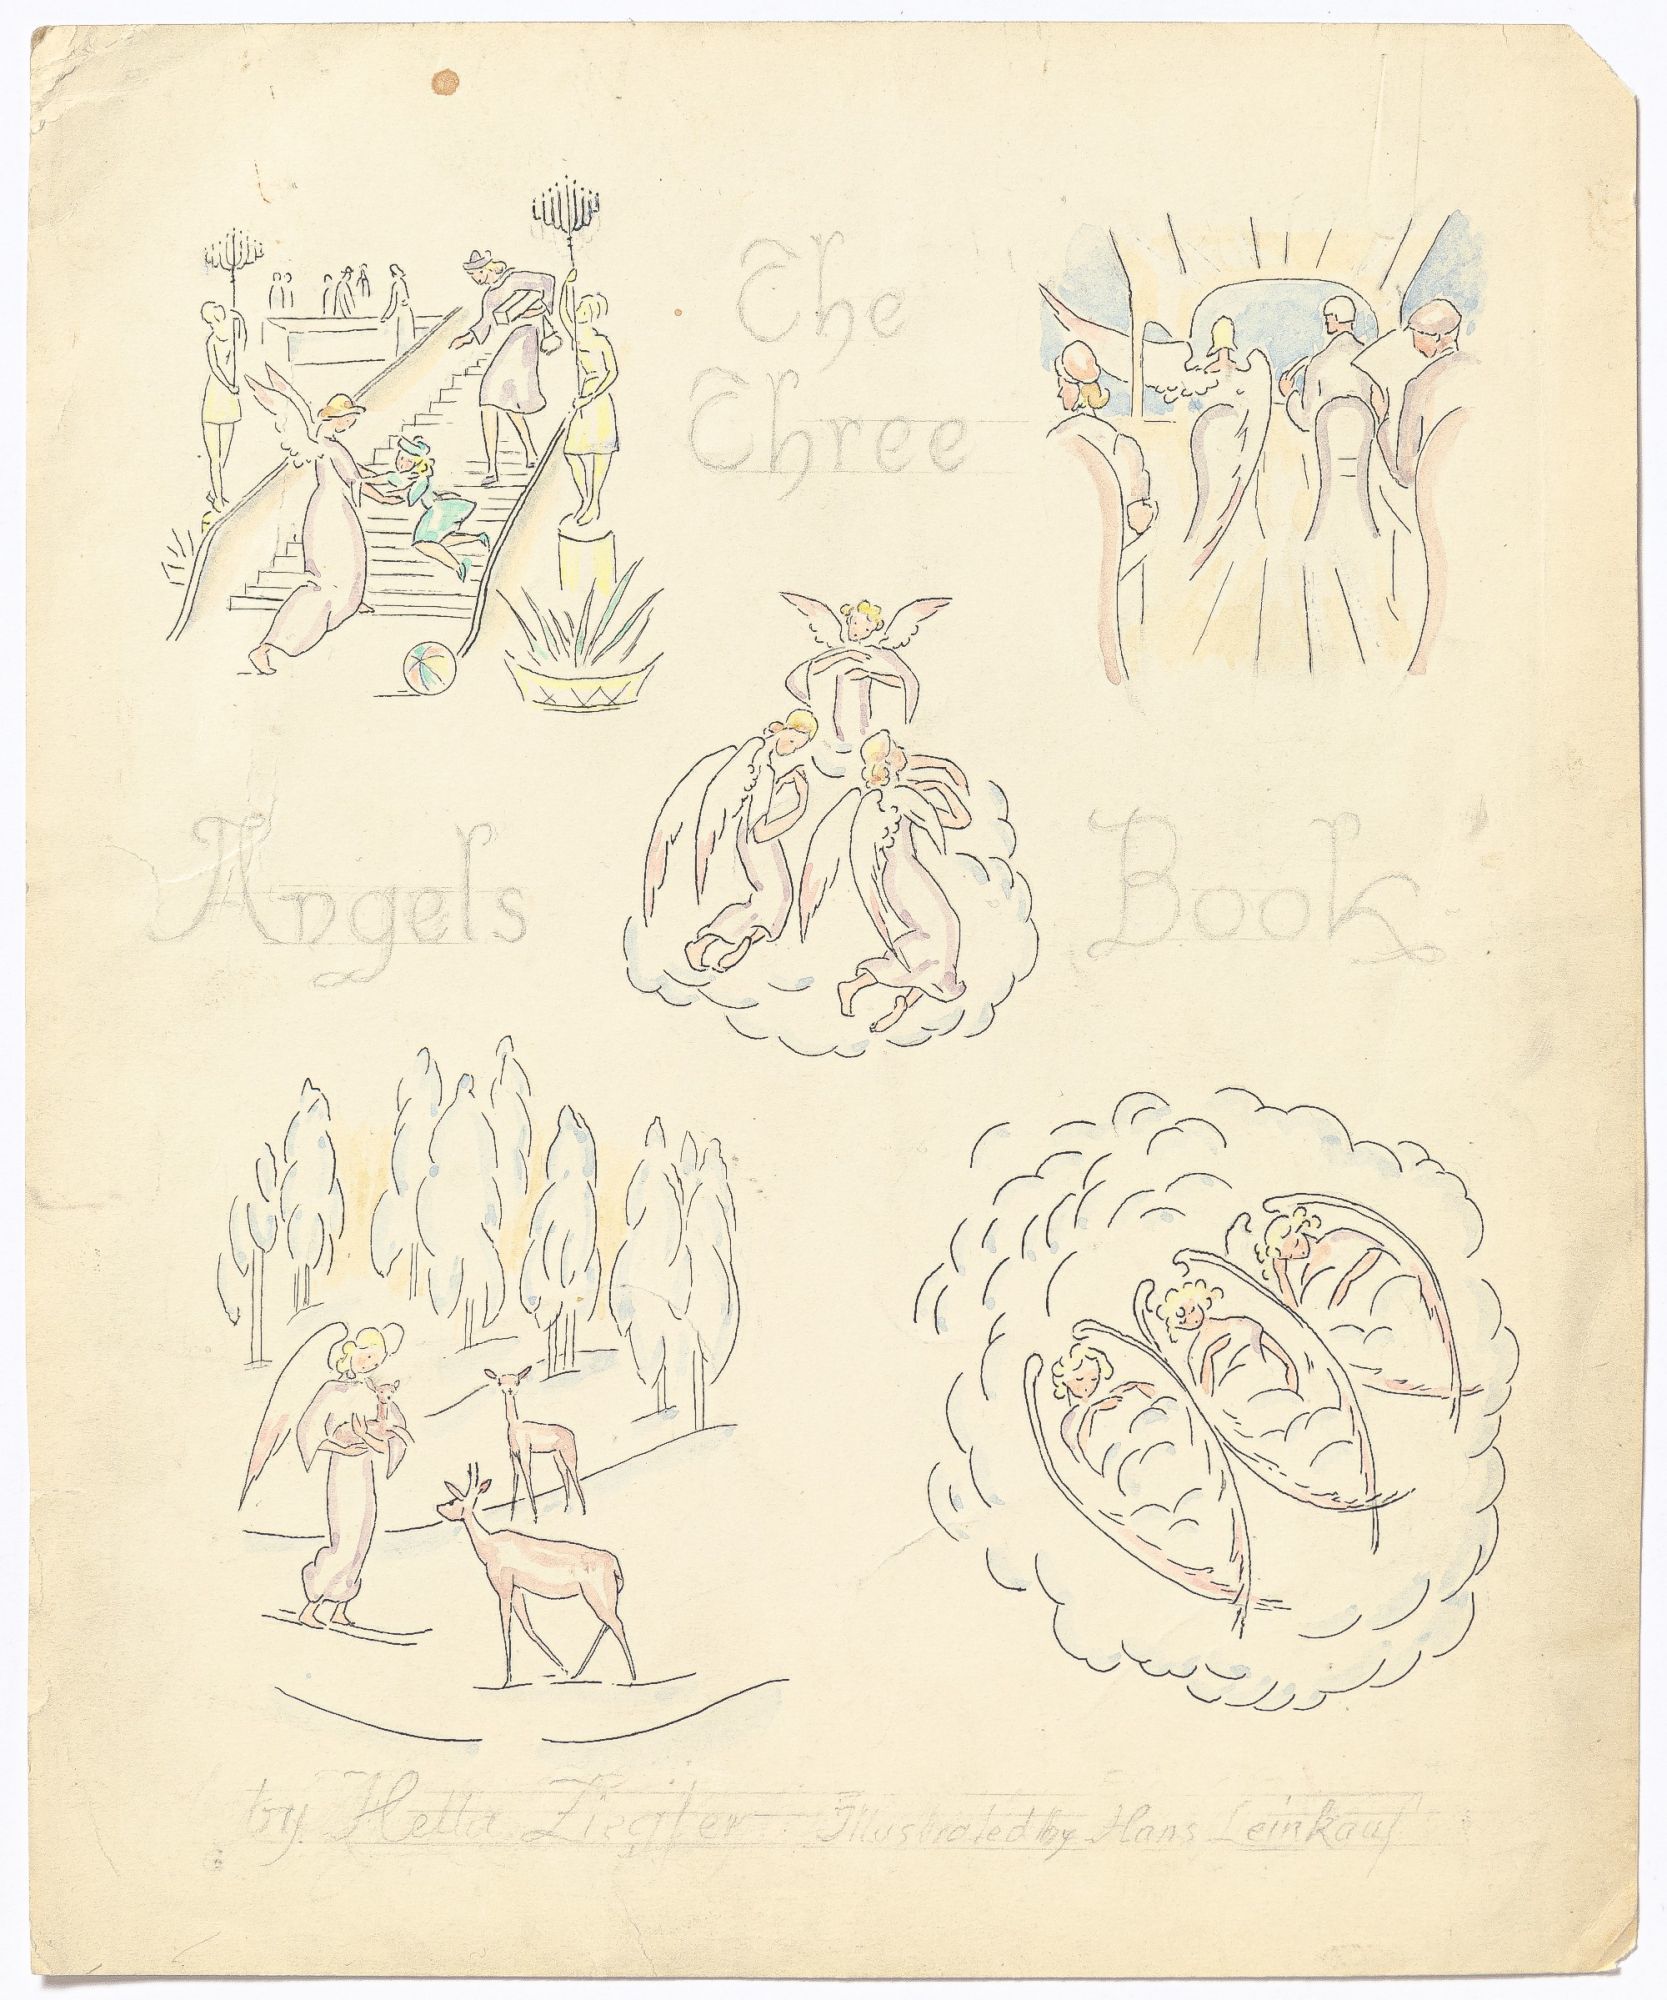 The
Three
Angels Book
by Hetta Ziegler Illustrated by Hans Leinkauf